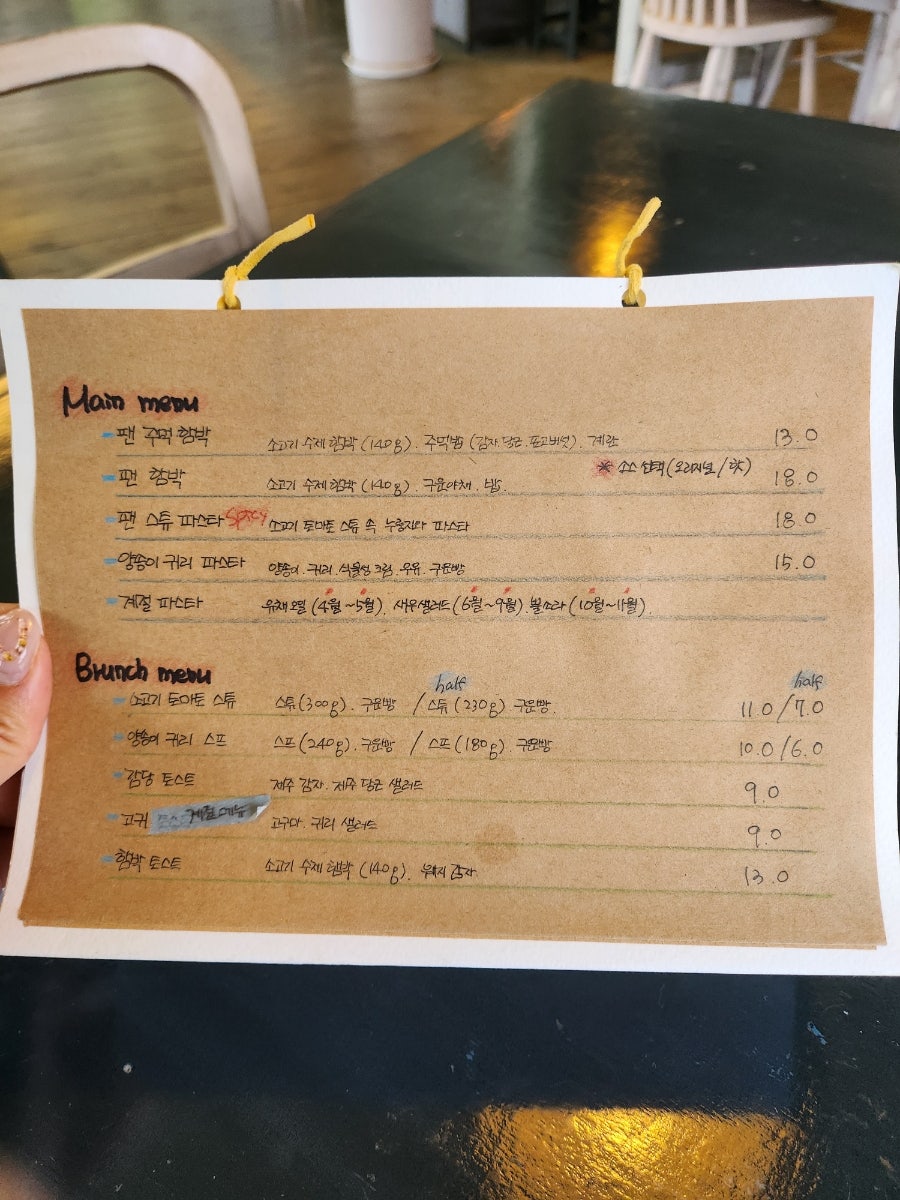 Main menu
팬 주먹 함박 소고기 수제 함박 (140g). 주먹밥 (감자. 당근. 표고버섯). 계란 13.0
* 소스 선택 (오리지널 / 핫)
팬 함박 소고기 수제 함박 (140g). 구운야채. 밥. 18.0
팬 스튜 파스타 Spicy 소고기 토마토 스튜 속 누룽지와 파스타 18.0
양송이 귀리 파스타 양송이. 귀리. 식물성 크림. 우유. 구운빵 15.0
계절 파스타 (4월~5월). 새우샐러드 (6월~9월). 뿔소라 (10월~11월)
Brunch menu
half half
소고기 토마토 스튜 스튜 (300g). 구운빵 / 스튜 (230g) 구운빵. 11.0 / 7.0
양송이 귀리 스프 스프 (240g). 구운빵 / 스프 (180g). 구운빵 10.0 / 6.0
감당 토스트 제주 감자. 제주 당근 샐러드 9.0
고귀 계절메뉴 고구마. 귀리 샐러드 9.0
함박 토스트 소고기 수제 함박 (140g). 웨지 감자 13.0